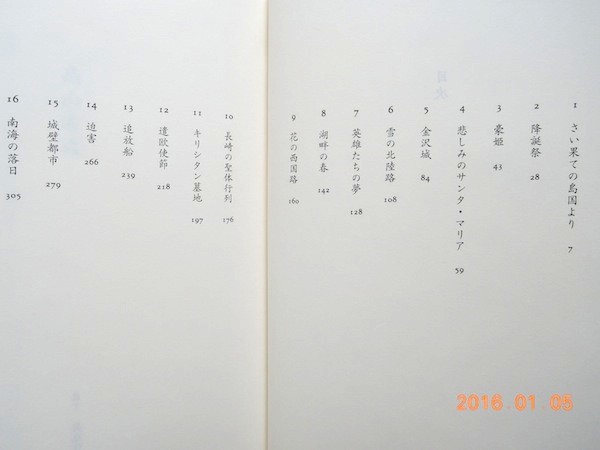 1 さい果ての島国より 7
2 降誕祭 28
3 豪姫 43
4 悲しみのサンタ・マリア 59
5 金沢城 84
6 雪の北陸路 108
7 英雄たちの夢 128
8 湖畔の春 142
9 花の西国路 160
10 長崎の聖体行列 176
11 キリシタン墓地 197
12 遣欧使節 218
13 追放船 239
14 迫害 266
15 城壁都市 279
16 南海の落日 305
2016.01.05